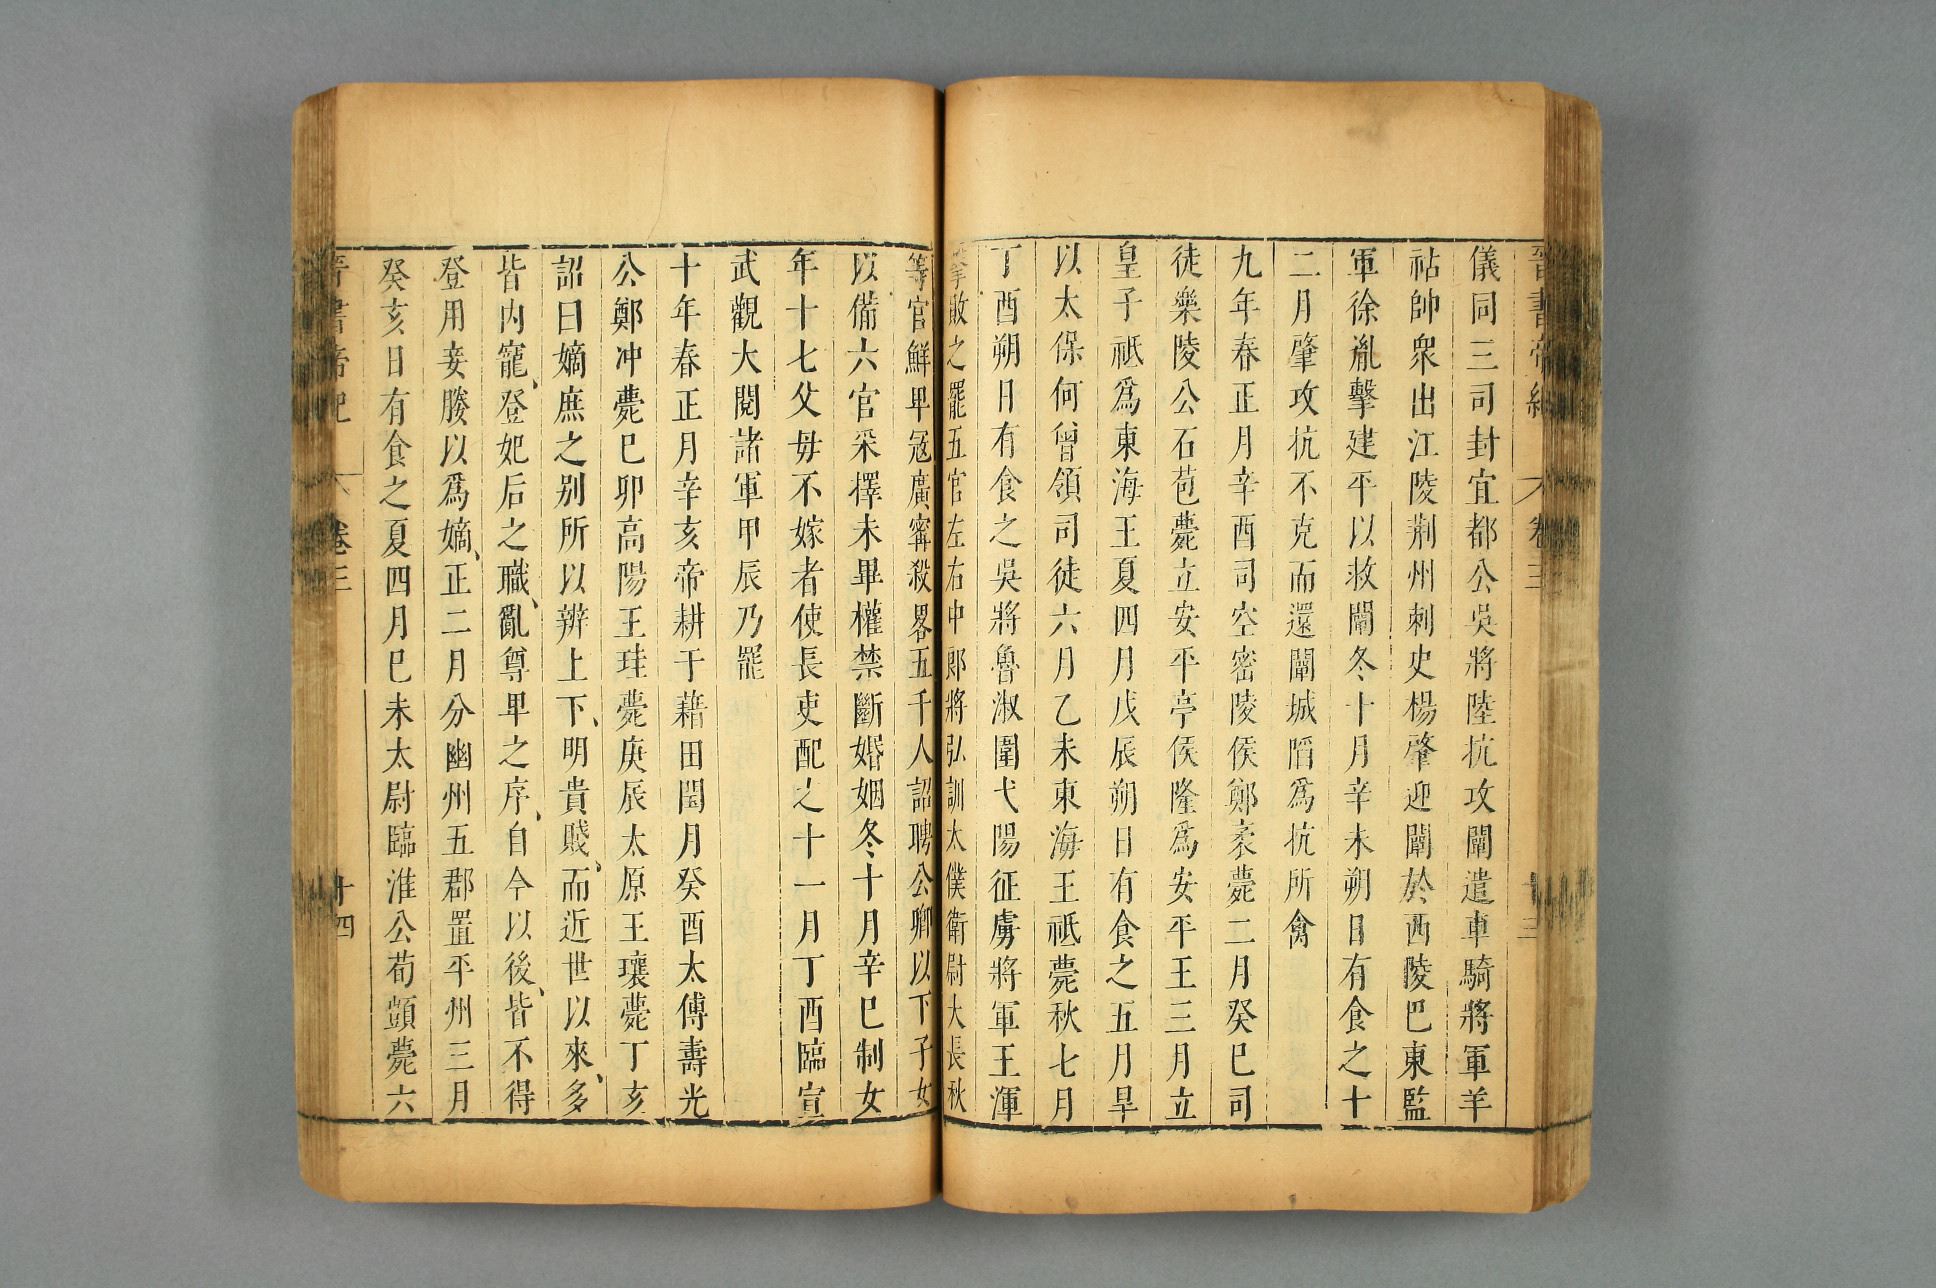 晉書帝紀 卷三
儀同三司封宜都公吳將陸抗攻闡遣車騎將軍羊
祜帥衆出江陵荆州刺史楊肇迎闡於西陵巴東監
軍徐胤擊建平以救闡冬十月辛未朔日有食之十
二月肇攻抗不克而還闡城䧟爲抗所禽
九年春正月辛酉司空密陵侯鄭袤薨二月癸巳司
徒樂陵公石苞薨立安平亭侯隆爲安平王三月立
皇子祗爲東海王夏四月戊辰朔日有食之五月旱
以太保何曾領司徒六月乙未東海王祗薨秋七月
丁酉朔日有食之吳將魯淑圍弋陽征虜將軍王渾
擊敗之罷五官左右中郎將弘訓太僕衛尉大長秋
等官鮮卑寇廣甯殺畧五千人詔聘公卿以下子女
以備六官采擇未畢權禁斷婚姻冬十月辛巳制女
年十七父母不嫁者使長吏配之十一月丁酉臨宣
武觀大閱諸軍甲辰乃罷
十年春正月辛亥帝耕于藉田閏月癸酉太傅壽光
公鄭冲薨己卯高陽王珪薨庚辰太原王瓌薨丁亥
詔曰嫡庶之别所以辨上下、明貴賤、而近世以來、多
皆内寵、登妃后之職、亂尊卑之序、自今以後、皆不得
登用妾媵以爲嫡、正二月分幽州五郡置平州三月
癸亥日有食之夏四月己未太尉臨淮公荀顗薨六
晉書帝紀 卷三 十四